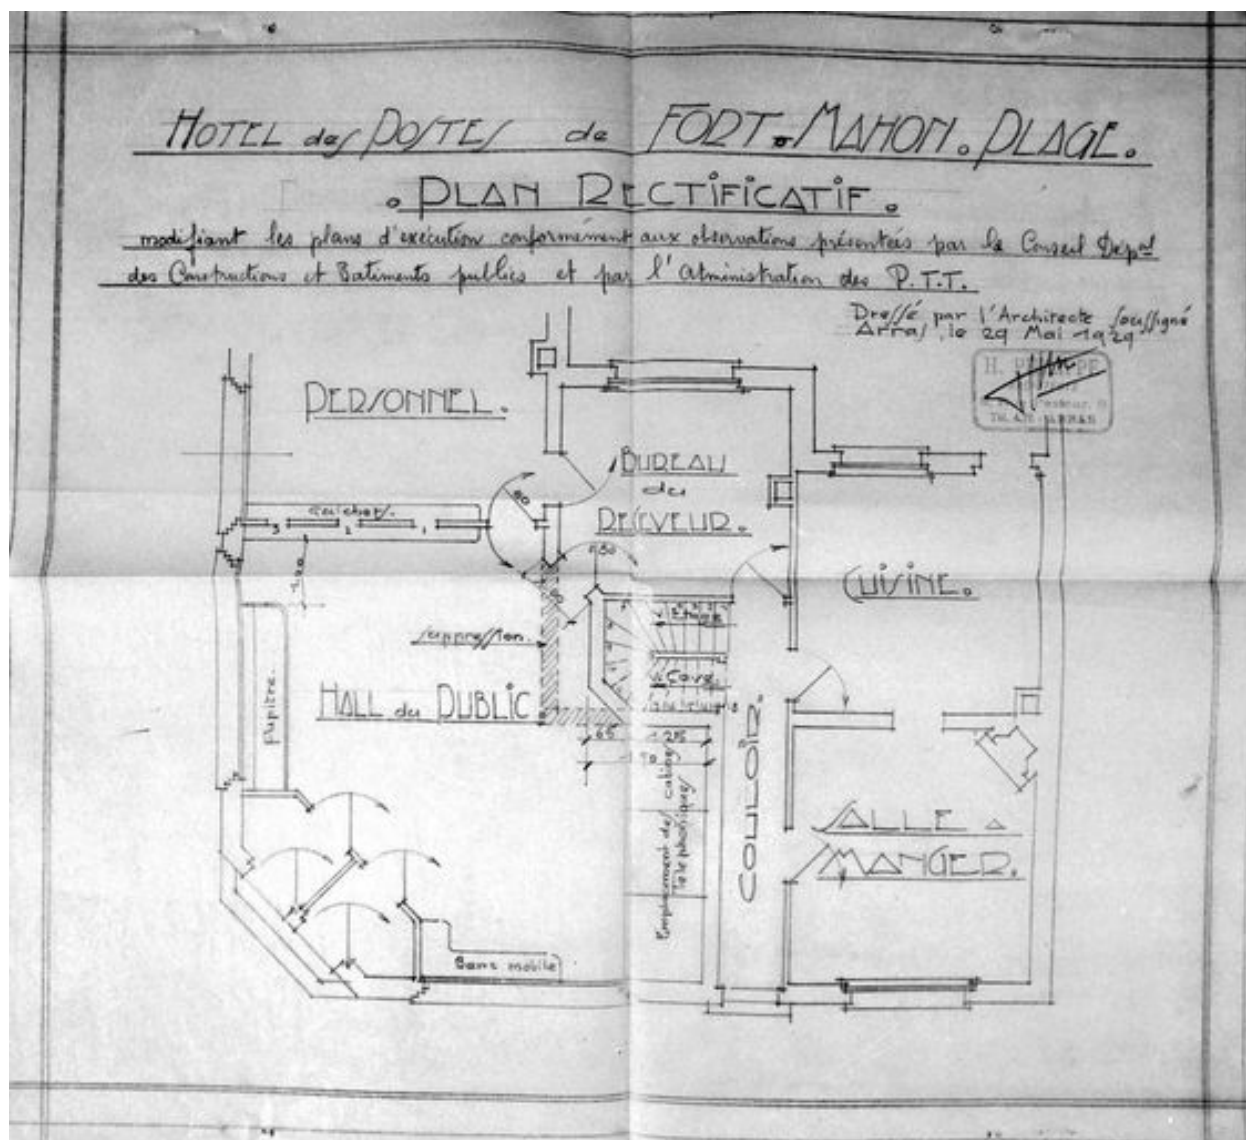 HOTEL des POSTES de FORT-MAHON.PLAGE.
. PLAN RECTIFICATIF .
modifiant les plans d'exécution conformément aux observations présentées par le Conseil Dép.al
des Constructions et Batiments publics et par l'Administration des P.T.T.
Dressé par l'Architecte soussigné
Arras, le 29 Mai 1929
PERSONNEL.
BUREAU
du
RECEVEUR.
Guichets.
3 2 1
80
CUISINE.
1.20
Etage
suppression.
Cave
HALL du PUBLIC
Pupitre.
65 1.25
COULOIR.
Emplacement des cabines
Téléphoniques
SALLE A
MANGER.
Banc mobile